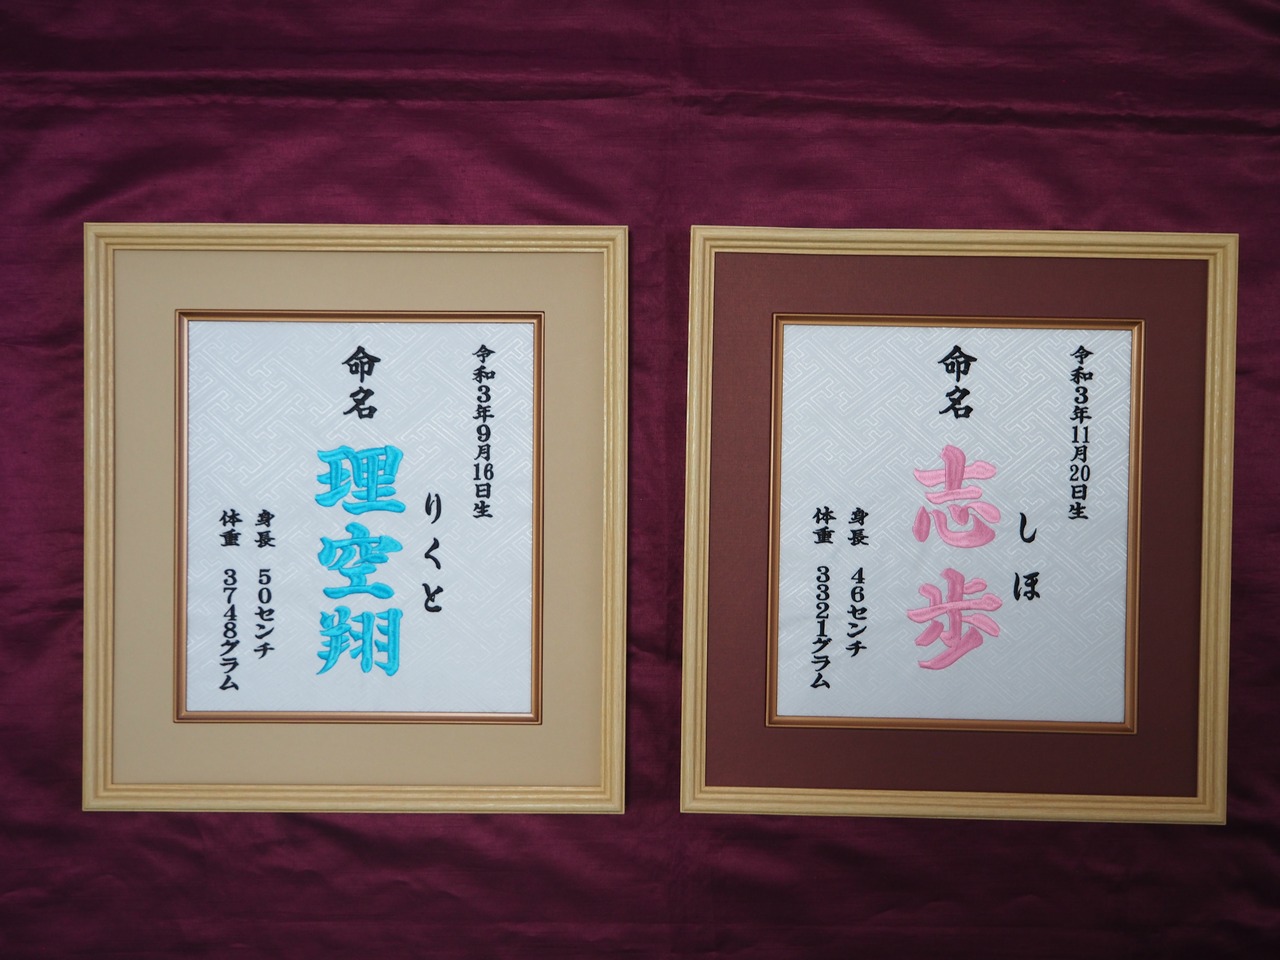 令和3年9月16日生
命名
理空翔
りくと
身長 50センチ
体重 3748グラム
令和3年11月20日生
命名
志歩
しほ
身長 46センチ
体重 3321グラム